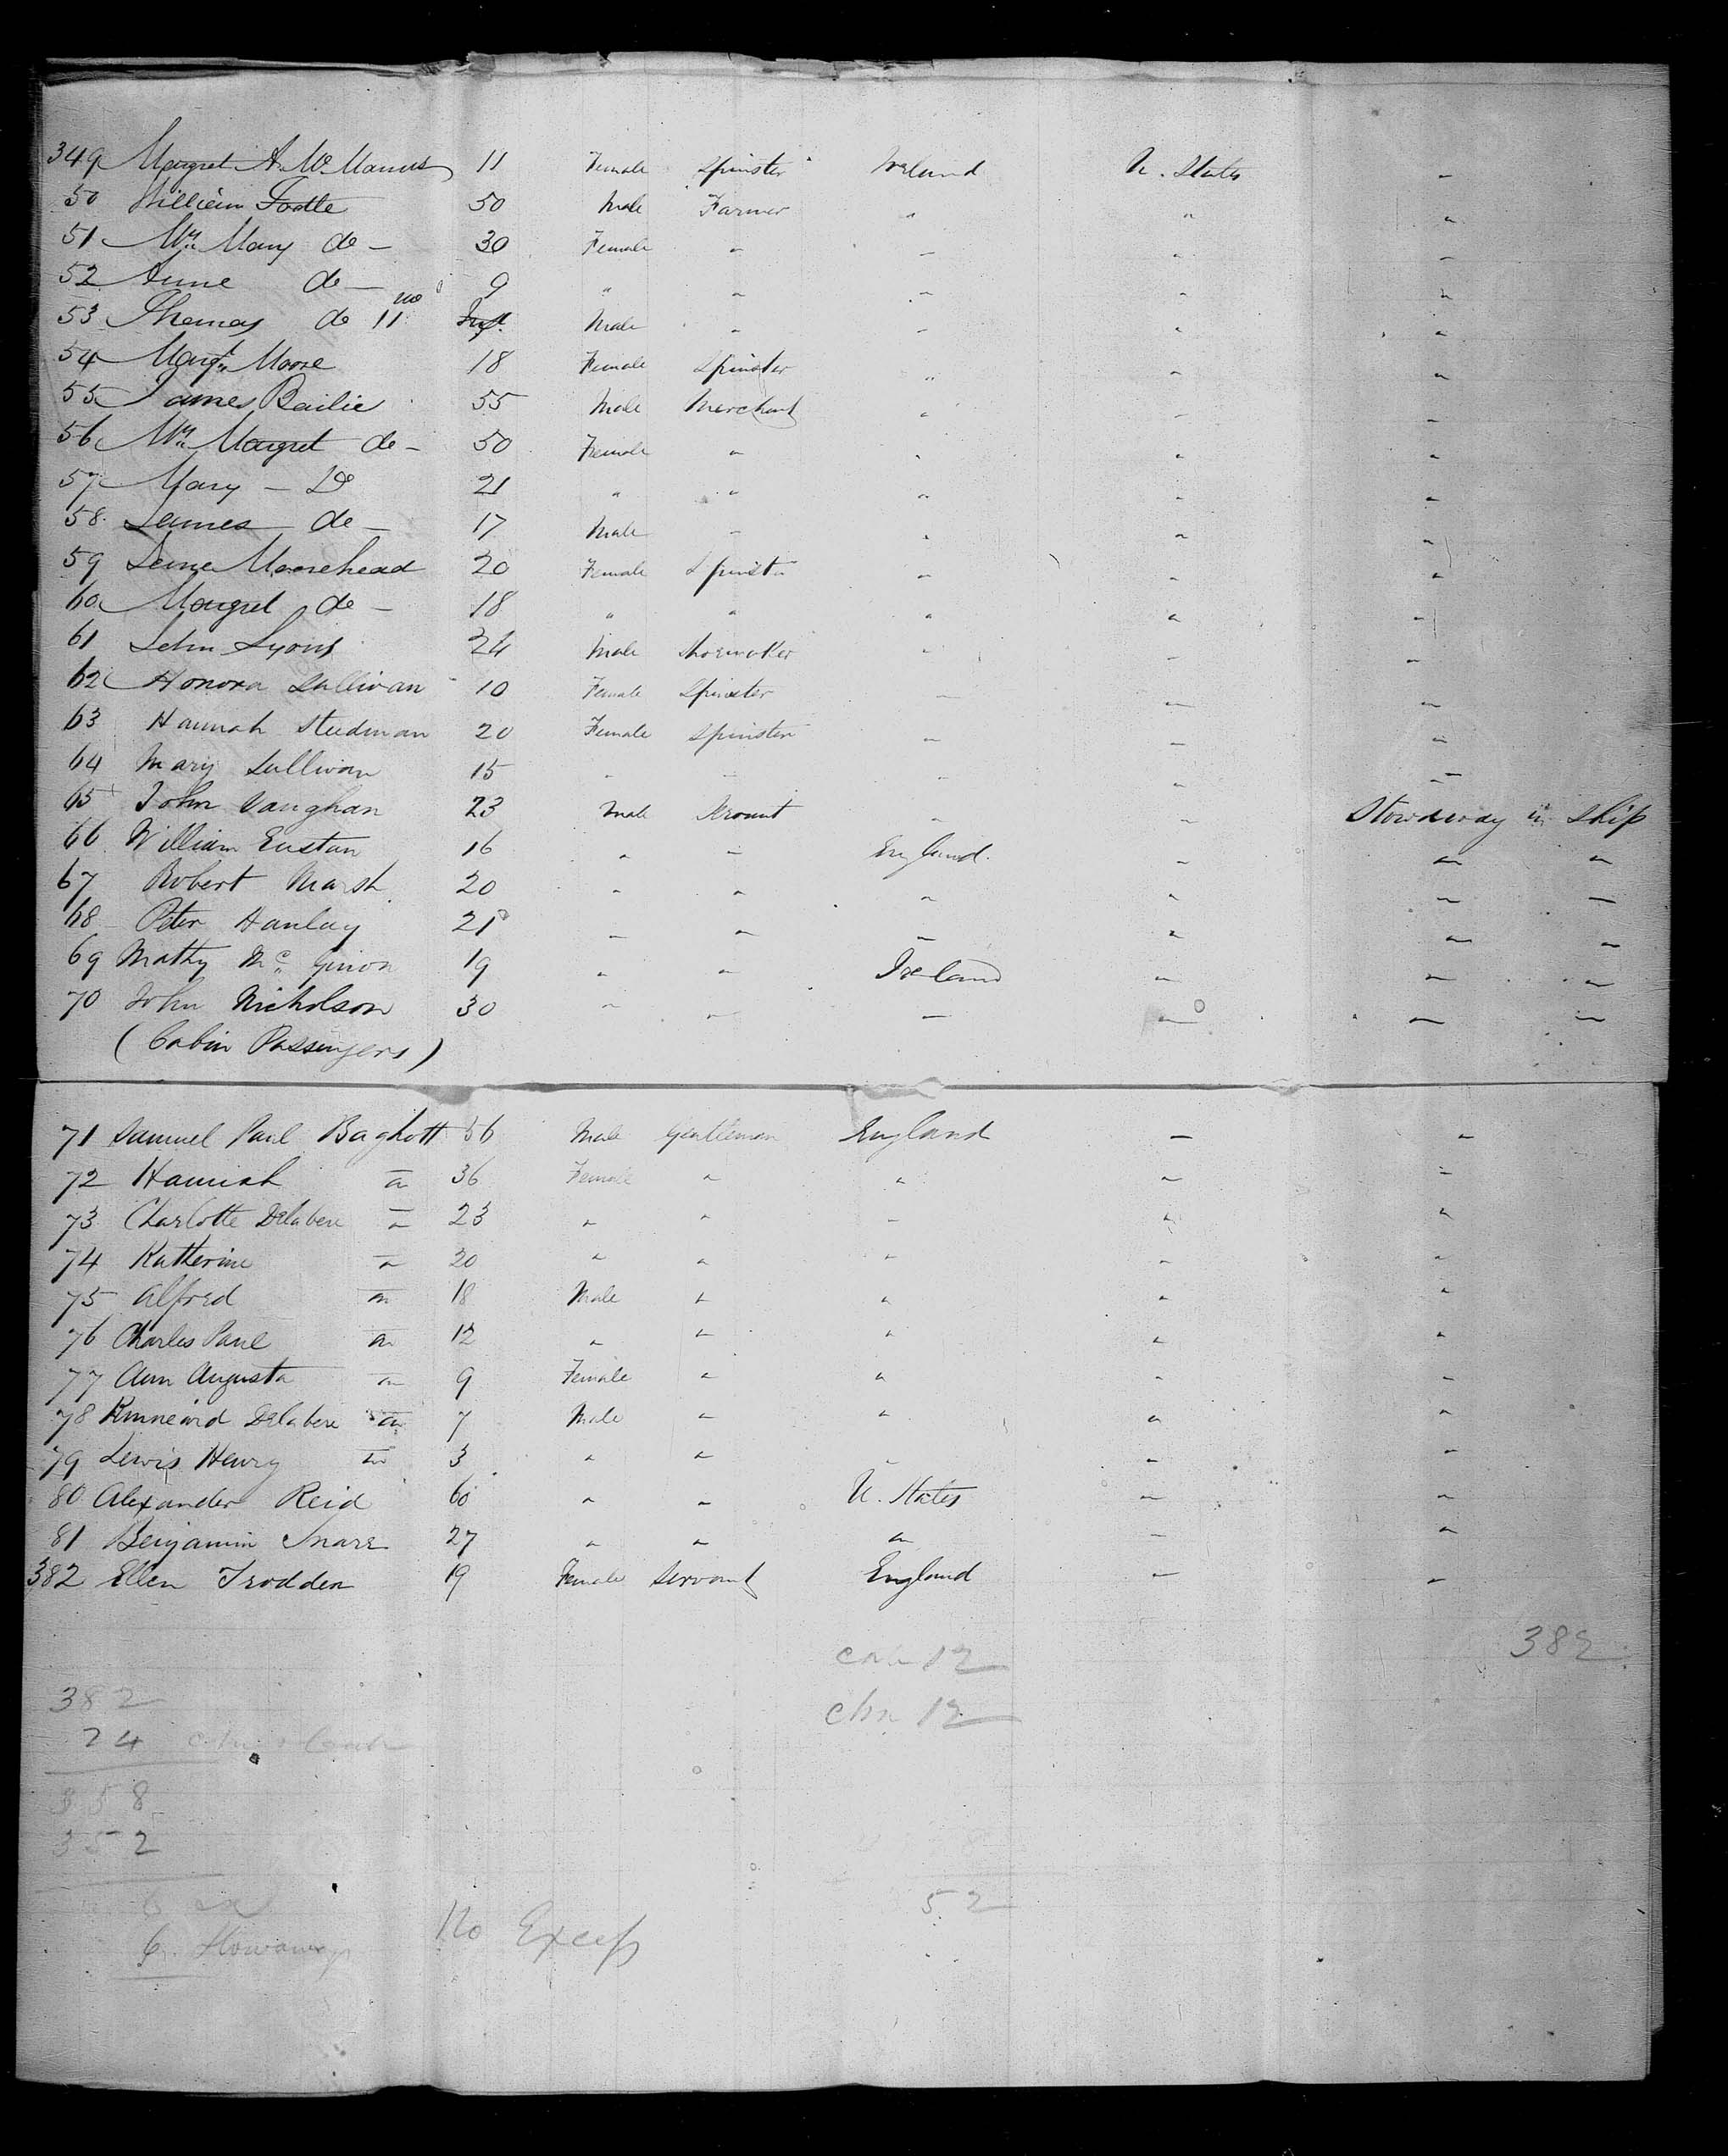 349 Margret A. Mc Manus 11 Female Spinster Ireland U. States -
50 William Foatte 50 Male Farmer " " "
51 Mrs Mary do - 30 Female " " " "
52 Anne do - 9 " " " " "
53 Thomas do 11 mo Inft Male " " " "
54 Margt Moore 18 Female Spinster " " "
55 James Bailie 55 Male Merchant " " "
56 Mrs Margret do - 50 Female " " " "
57 Mary - Do 21 " " " " "
58 James do - 17 Male " " " "
59 Jane Moorehead 20 Female Spinster " " "
60 Margret do - 18 " " " " "
61 John Lyons 24 Male Shoemaker " " "
62 Honora Sullivan 10 Female Spinster " " "
63 Hannah Studman 20 Female Spinster " " "
64 Mary Sullivan 15 " " " " "
65 John Vaughan 23 Male Servant " " Stowaway in Ship
66 William Eustan 16 " " England " " "
67 Robert Marsh 20 " " " " " "
68 Peter Hanlay 21 " " " " " "
69 Mathy Mc Ginon 19 " " Ireland " " "
70 John Nicholson 30 " " " " " "
(Cabin Passengers)
71 Samuel Paul Baghott 56 Male Gentleman England " "
72 Hannah " 36 Female " " " "
73 Charlotte Delabere " 23 " " " " "
74 Katherine " 20 " " " " "
75 Alfred " 18 Male " " " "
76 Charles Paul " 12 " " " " "
77 Ann Augusta " 9 Female " " " "
78 Kinneard Delabere " 7 Male " " " "
79 Lewis Henry " 3 " " " " "
80 Alexander Reid 60 " " U. States " "
81 Benjamin Snare 27 " " " " "
382 Ellen Trodden 19 Female Servant England " "
382
12
382
chn 12
24
358
352
6
52
No Excess
6 Stowaways